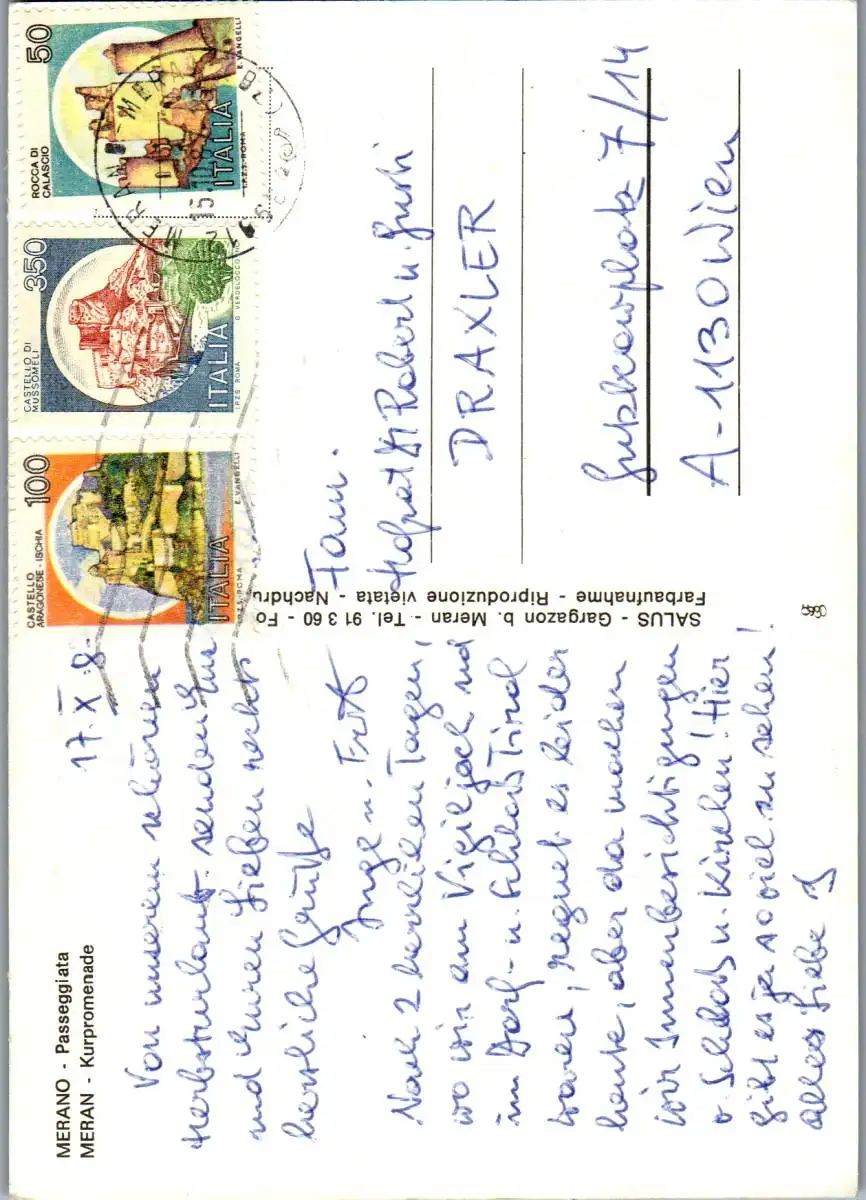 MERANO - Passeggiata
MERAN - Kurpromenade
17. X. 8
Von unserem schönen
Herbsturlaub senden wir Eu
und Euren Lieben recht
herzliche Grüße
Inge u. Fritz
Nach 2 herrlichen Tagen,
wo wir am Vigiljoch und
im Dorf- u. Schloß Tirol
waren, regnet es leider
heute, aber da machen
wir Innenbesichtigungen
v. Schloß u. Kirchen! Hier
gibt es ja so viel zu sehen!
Alles Liebe I
SALUS - Gargazon b. Meran - Tel. 91 3 60 - Fo
Farbaufnahme - Riproduzione vietata - Nachdru
CASTELLO
ARAGONESE - ISCHIA
100
ITALIA
I.P.Z.S. - ROMA
E. VANGELLI
CASTELLO DI
MUSSOMELI
350
ITALIA
I.P.Z.S. ROMA
G. VERDELOCCO
ROCCA DI
CALASCIO
50
ITALIA
I.P.Z.S. - ROMA
E. VANGELLI
MERANO - MERAN
Fam.
Hofrat DI Robert u. Gusti
DRAXLER
Gutzkowplatz 7/14
A-1130 Wien